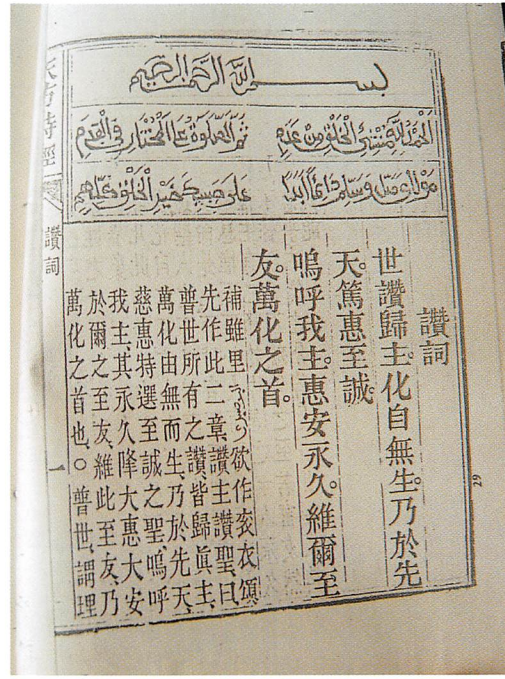 بسم الله الرحمن الرحيم
الحمد لله منشئ الخلق من عدم ثم الصلوة على المختار في القدم
مولاي صل وسلم دائما ابدا على حبيبك خير الخلق كلهم
讚詞
世讚歸主。化自無生。乃於先
天。篤惠至誠。
嗚呼我主。惠安永久。維爾至
友。萬化之首。
補雖里欲作衮衣頌
先作此二章、讚主讚聖、曰、
普世所有之讚、皆歸眞主、
萬化由無而生、乃於先天、
慈惠特選至誠之聖、嗚呼
我主、其永久降大惠大安
於爾之至友、維此至友、乃
萬化之首也、○普世、謂理
天方詩經
讚詞
一
29